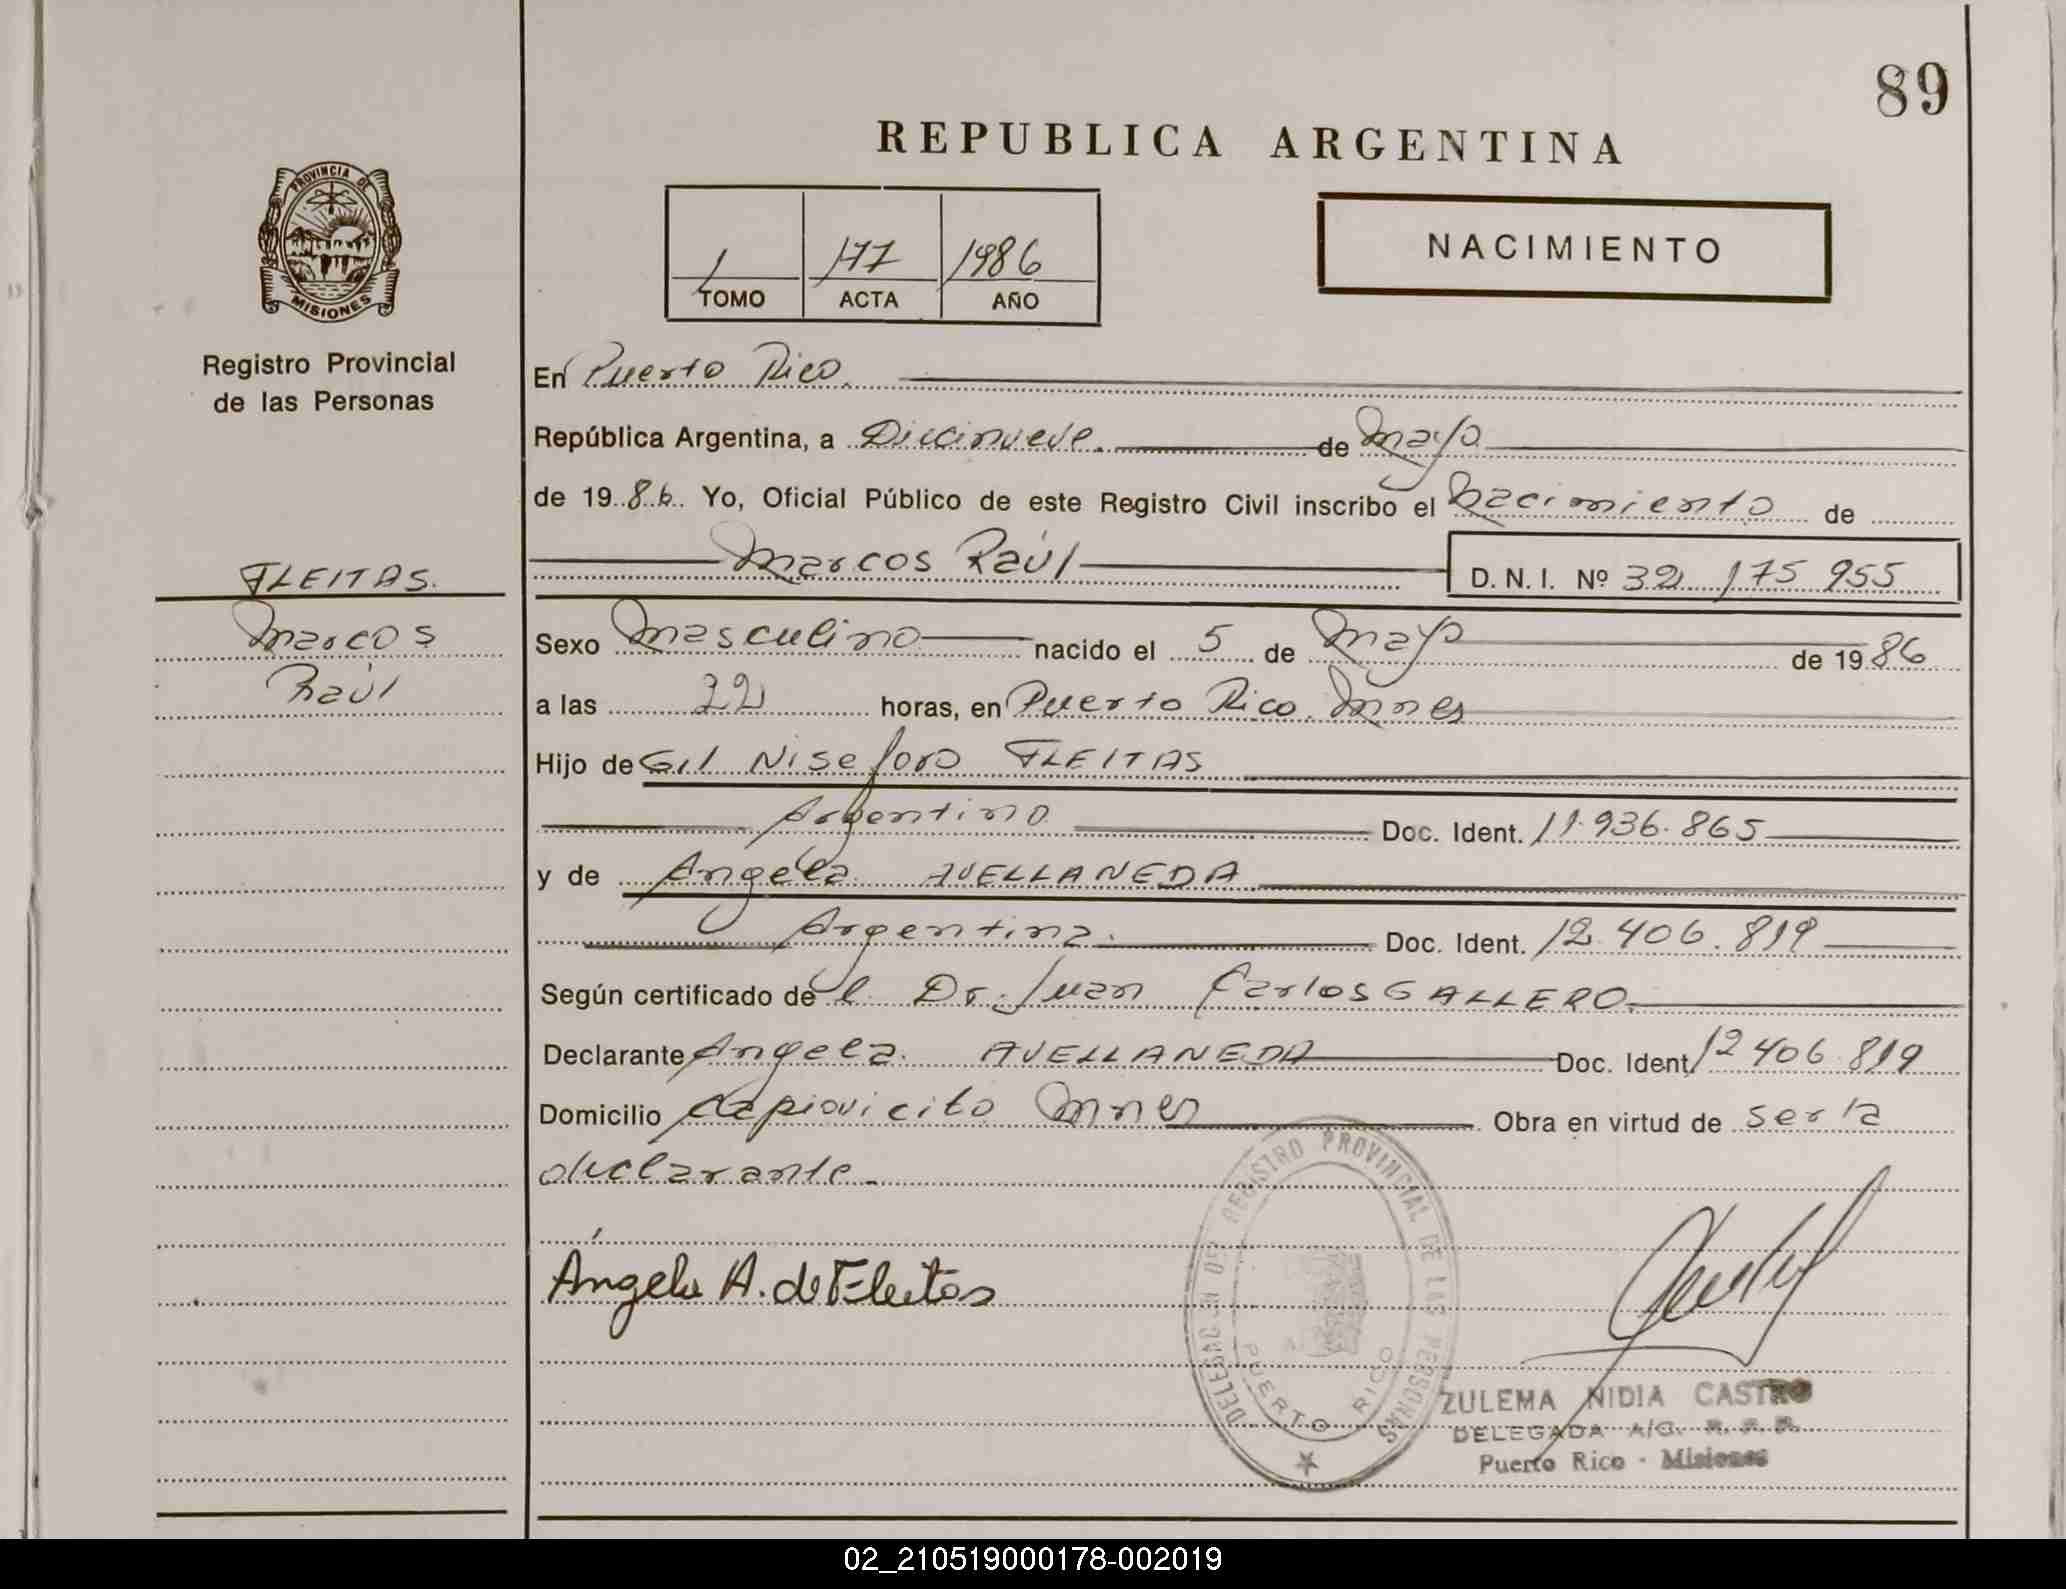 89
REPUBLICA ARGENTINA
PROVINCIA DE
MISIONES
Registro Provincial
de las Personas
1 177 1986
TOMO ACTA AÑO
NACIMIENTO
En Puerto Rico.
República Argentina, a Diecinueve. de Mayo
de 1986. Yo, Oficial Público de este Registro Civil inscribo el Nacimiento de
Marcos Raúl D. N. I. Nº 32 175 955
FLEITAS.
Marcos
Raúl
Sexo Masculino nacido el 5 de Mayo de 1986
a las 22 horas, en Puerto Rico. Mnes
Hijo de Gil Niseforo FLEITAS
Argentino Doc. Ident. 11.936.865
y de Angela AVELLANEDA
Argentina. Doc. Ident. 12.406.819
Según certificado del Dr. Juan Carlos GALLERO.
Declarante Angela AVELLANEDA Doc. Ident 12 406.819
Domicilio Capiovicito Mnes Obra en virtud de ser la
declarante.
Ángela A. de Fleitas
DELEGACION DEL REGISTRO PROVINCIAL DE LAS PERSONAS
PUERTO RICO
ZULEMA NIDIA CASTRO
DELEGADA A/C. R. P. P.
Puerto Rico - Misiones
02_210519000178-002019